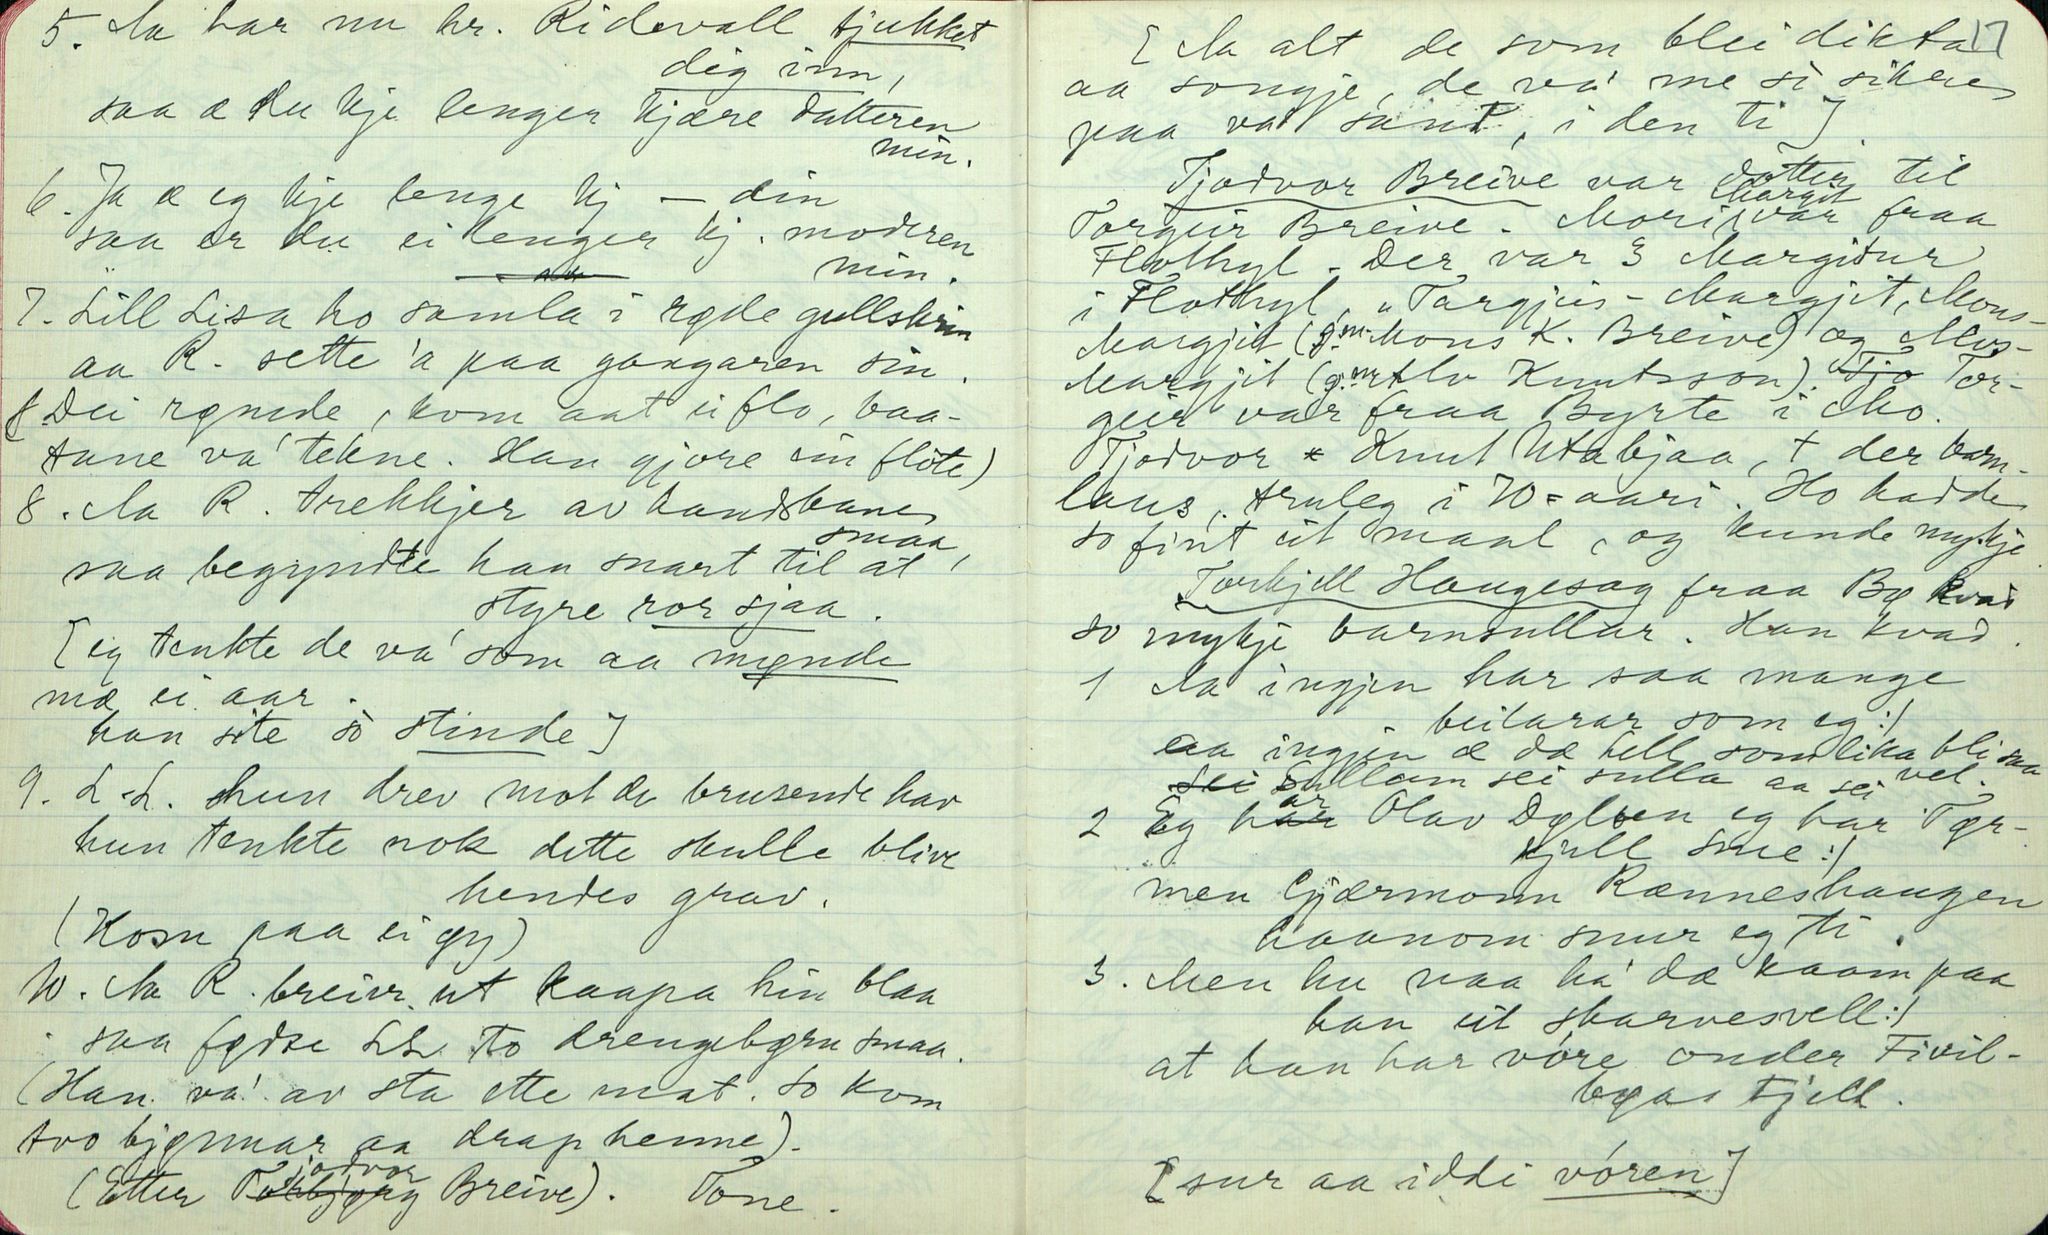 5. Aa har nu hr. Ridevall tjukket
dig inn,
saa æ du kje lenger kjære datteren
min.
6. Ja æ eg kje lenge kj — din
saa er du ei lenger kj. moderen
min.
7. Lill Lisa ho samla i røde gullskrin
aa R. sette 'a paa gangaren sin.
(Dei rømde, kom aat ei flo, baa-
tane va' tekne. Han gjore ein flote)
8. Aa R. trekkjer av handskane
smaa,
saa begyndte han snart til at
styre ror sjaa.
[eg tenkte de va' som aa
mæ ei aar.
han site so stinde]
9. L.L. hun drev mot de brusende hav
hun tenkte nok dette skulle blive
hendes grav.
(Kom paa ei øy)
10. Aa R. breier ut kaapa hin blaa
saa fødse LL to drengebørn smaa.
(Han va' av sta ette mat. So kom
tvo bjønnar aa drap henne).
(Etter Tjodvor Breive). Tone.
17
[Aa alt de som blei dikta
aa songje, de va' me so sikre
paa va' sant, i den ti]
Tjodvor Breive var dotter til
Torgeir Breive. Mori Margit var fraa
Flothyl. Der var 3 Margitur
i Flothyl, "Targjeis-Margjit, Mons-
Margjit (g.m. Mons K. Breive) og
Margjit (g.m. Knutsson)." Tjo Tor-
geir var fraa Byrte i Mo.
Tjodvor x Knut Utabjaa, † der barn-
laus, truleg i 70-aari. Ho hadde
so fint eit maal, og kunde mykje
Torkjell Haugesag fraa Bø kvad
so mykje barnsullar. Han kvad.
1 Aa ingjen har saa mange
beilarar som eg :/
aa ingjen æ dæ hell som lika bli saa
sei sullam sei sulla aa sei vel.
2 Eg har Olav Dølsen eg har Tør-
kjell Sme :/
men Gjærmonn Rænneshaugen
haanom snur eg ti.
3. Men hu vaa ha' dæ kaam paa
han eit skarvesvell :/
at han har vóre onder Fivil-
bøas fjell.
[sur aa iddi vóren]